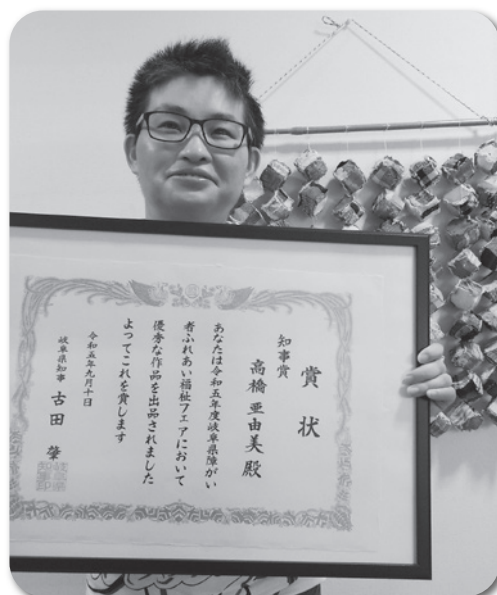 賞状
知事賞
高橋亜由美殿
あなたは令和五年度岐阜県障がい
者ふれあい福祉フェアにおいて
優秀な作品を出品されました
よってこれを賞します
令和五年九月十日
岐阜県知事 古田 肇